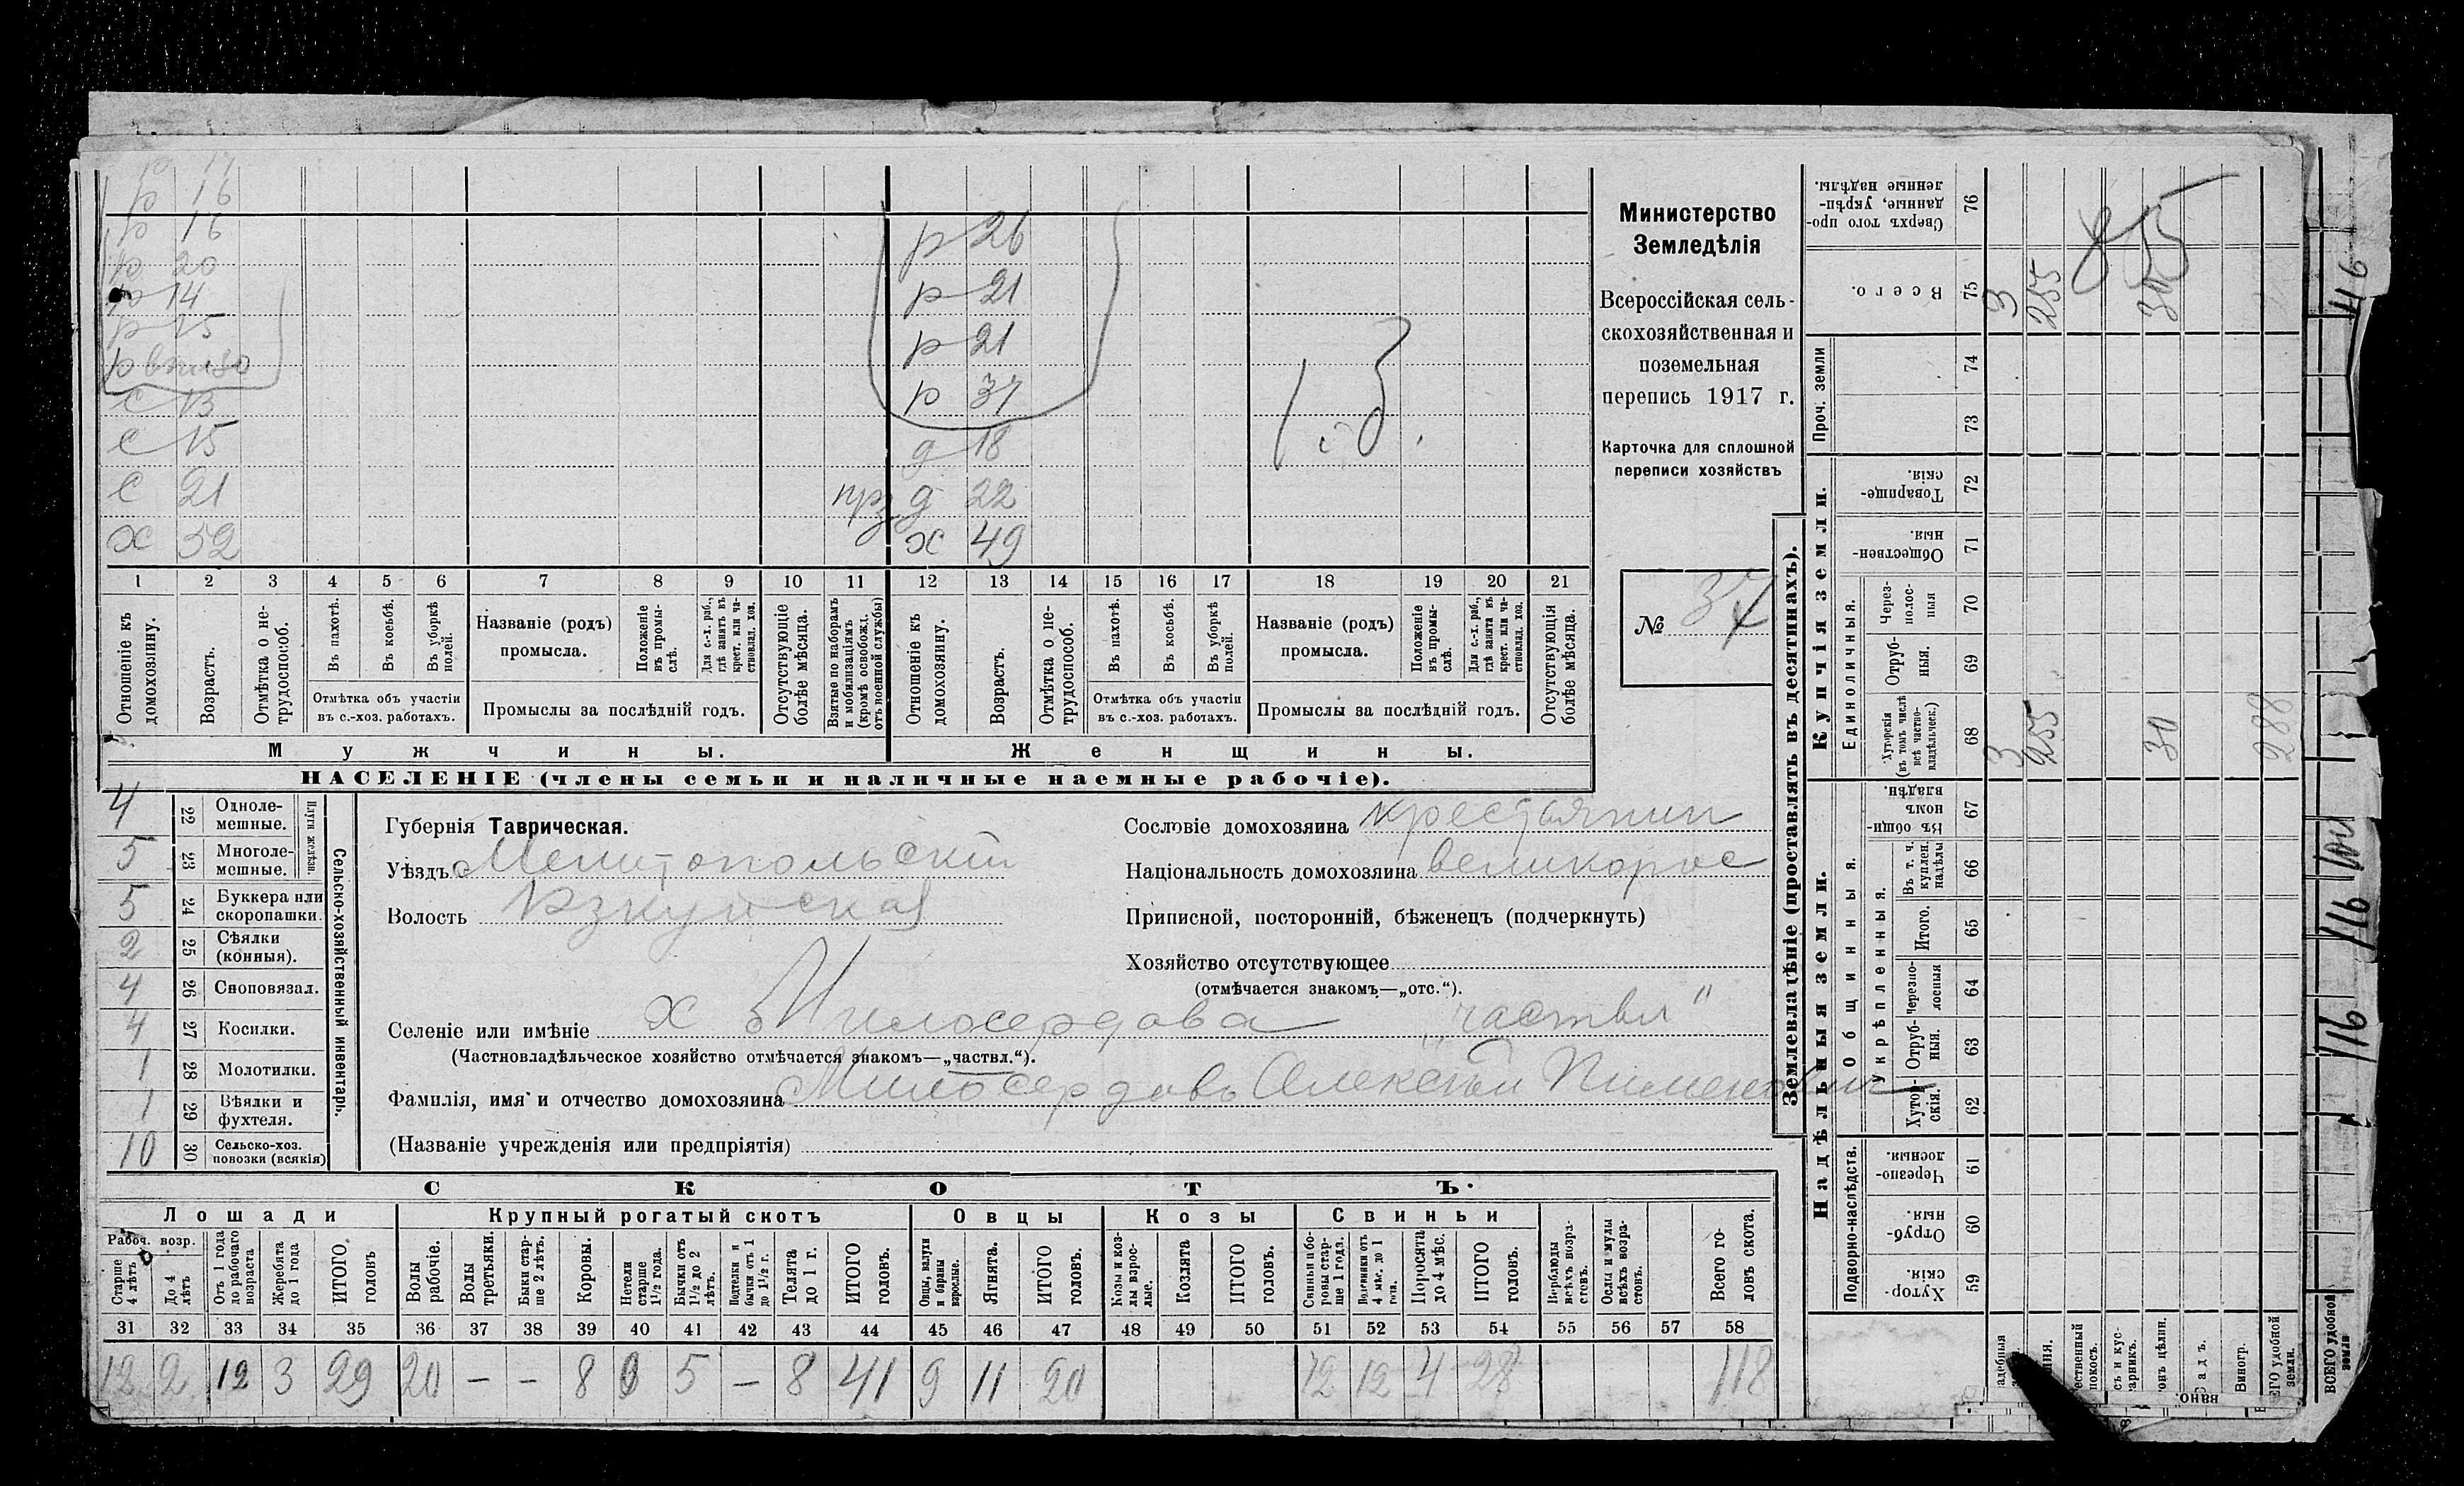 р 17
р 16
р 16
р 20
р 14
р 15
с 13
с 15
с 21
х 52
р 26
р 21
р 21
р 37
д 18
д 22
х 49
13
1 2 3 4 5 6 7 8 9 10 11 12 13 14 15 16 17 18 19 20 21
Отношеніе къ домохозяину.
Возрастъ.
Отмѣтка о не-трудоспособ.
Въ пахотѣ.
Въ косьбѣ.
Въ уборкѣ полей.
Отмѣтка объ участіи въ с.-хоз. работахъ.
Названіе (родъ) промысла.
Положеніе въ промы-слѣ.
Для с.-х. раб., гдѣ занятъ въ крест. или ча-стновлад. хоз.
Промыслы за послѣдній годъ.
Отсутствующіе болѣе мѣсяца.
Взятые по наборамъ и мобилизаціямъ (кромѣ освобожд. отъ военной службы)
Отношеніе къ домохозяину.
Возрастъ.
Отмѣтка о не-трудоспособ.
Въ пахотѣ.
Въ косьбѣ.
Въ уборкѣ полей.
Отмѣтка объ участіи въ с.-хоз. работахъ.
Названіе (родъ) промысла.
Положеніе въ промы-слѣ.
Для с.-х. раб., гдѣ занята въ крест. или ча-стновлад. хоз.
Промыслы за послѣдній годъ.
Отсутствующія болѣе мѣсяца.
Мужчины.
Женщины.
НАСЕЛЕНІЕ (члены семьи и наличные наемные рабочіе).
Министерство
Земледѣлія
Всероссійская сель-
скохозяйственная и
поземельная
перепись 1917 г.
Карточка для сплошной
переписи хозяйствъ
№ 37
4 22 Одноле-мешные.
5 23 Многоле-мешные.
Плуги желѣзн.
5 24 Буккера или скоропашки.
2 25 Сѣялки (конныя).
4 26 Сноповязал.
4 27 Косилки.
1 28 Молотилки.
1 29 Вѣялки и фухтеля.
10 30 Сельско-хоз. повозки (всякія)
Сельско-хозяйственный инвентарь.
Губернія Таврическая.
Уѣздъ Мелитопольскій
Волость
Сословіе домохозяина крестьянин
Національность домохозяина великорос
Приписной, посторонній, бѣженецъ (подчеркнуть)
Хозяйство отсутствующее
(отмѣчается знакомъ—„отс.“).
Селеніе или имѣніе х Милосердова „частвл"
(Частновладѣльческое хозяйство отмѣчается знакомъ—„частвл.“).
Фамилія, имя и отчество домохозяина Милосердовъ Алексѣй Пименович
(Названіе учрежденія или предпріятія)
СКОТЪ.
Лошади
Крупный рогатый скотъ
Овцы
Козы
Свиньи
Рабоч. возр.
Старше 4 лѣтъ
До 4 лѣтъ
Отъ 1 года до рабочаго возраста
Жеребята до 1 года
ИТОГО головъ
Волы рабочіе.
Волы третьяки.
Быки стар-ше 2 лѣтъ.
Коровы.
Нетели старше 1½ года.
Бычки отъ 1½ до 2 лѣтъ.
Подтелки и бычки отъ 1 до 1½ г.
Телята до 1 г.
ИТОГО головъ.
Овцы, валухи и бараны взрослые.
Ягнята.
ИТОГО головъ.
Козы и коз-лы взрос-лые.
Козлята
ИТОГО головъ.
Свиньи и бо-ровы стар-ше 1 года.
Подсвинки отъ 4 мѣс. до 1 года.
Поросята до 4 мѣс.
ИТОГО головъ.
Верблюды всѣхъ возра-стовъ.
Ослы и мулы всѣхъ возра-стовъ.
Всего го-ловъ скота.
31 32 33 34 35 36 37 38 39 40 41 42 43 44 45 46 47 48 49 50 51 52 53 54 55 56 57 58
12 2 12 3 29 20 – – 8 0 5 – 8 41 9 11 20 12 12 4 28 118
Землевладѣніе (проставлять въ десятинахъ).
Надѣльныя земли.
Купчія земли.
Проч. земли
Подворно-наслѣдств.
Общинныя.
Укрѣпленныя.
Единоличныя.
Сверхъ того про-данные, укрѣп-ленные надѣлы. 76
Всего. 75
74
73
Товарище-скія. 72
Обществен-ныя. 71
Через-полос-ныя 70
Отруб-ныя. 69
Хуторскія (въ томъ числѣ всѣ частно-владѣльческ.) 68
Въ общи-номъ владѣн. 67
Въ т. ч. куплен. надѣлы 66
Итого. 65
Черезпо-лосныя 64
Отруб-ныя. 63
Хутор-скія. 62
Черезпо-лосныя. 61
Отруб-ныя. 60
Хутор-скія. 59
3
255
30
288
3
255
30
116
116
116
Виногр.
ВСЕГО удобной земли